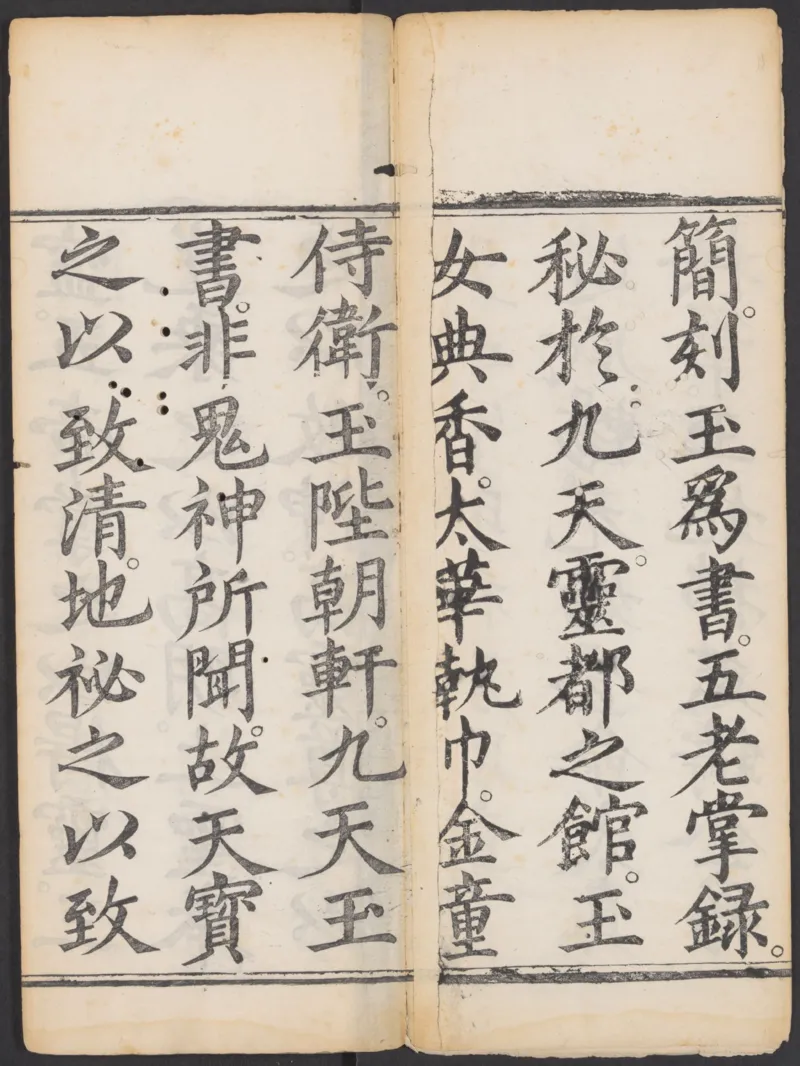 簡。刻玉爲書。五老掌録。
秘於九天靈都之館。玉
女典香。太華執巾。金童
侍衛。玉陛朝軒。九天玉
書。非鬼神所聞。故天寶
之以致清。地祕之以致